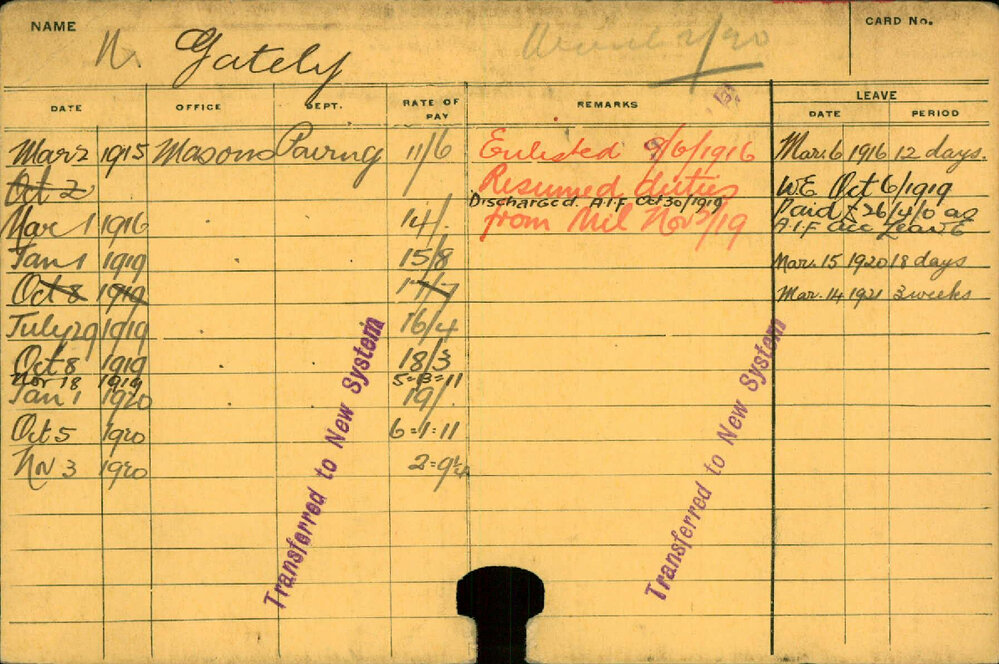 NAME
CARD No.
N. Gately
2/20
LEAVE
DATE OFFICE DEPT. RATE OF PAY REMARKS DATE PERIOD
Mar 2 1915 Masons Paving 11/6 Enlisted 9/6/1916 Mar. 6 1916 12 days.
Oct 2 Resumed duties W.E Oct 6/1919
Discharged. A.I.F Oct 30/1919 Paid £26/4/0 as
Mar 1 1916 14/. from Mil Nov 3/19 A.I.F acc Leave
Jan 1 1919 15/8 Mar. 15 1920 18 days
Oct 8 1919 17/7 Mar. 14 1921 3 weeks
July 29 1919 16/4
Oct 8 1919 18/3
Nov 18 1919 5=13=11
Jan 1 1920 19/.
Oct 5 1920 6=1=11
Nov 3 1920 2=9¼
Transferred to New System
Transferred to New System